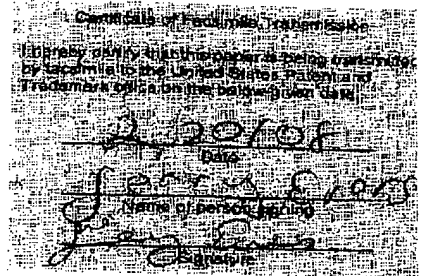 Certificate of Facsimile Transmission
I hereby certify that this paper is being transmitted
by facsimile to the United States Patent and
Trademark office on the below given date
2/20/08
Date
Name of person signing
Signature